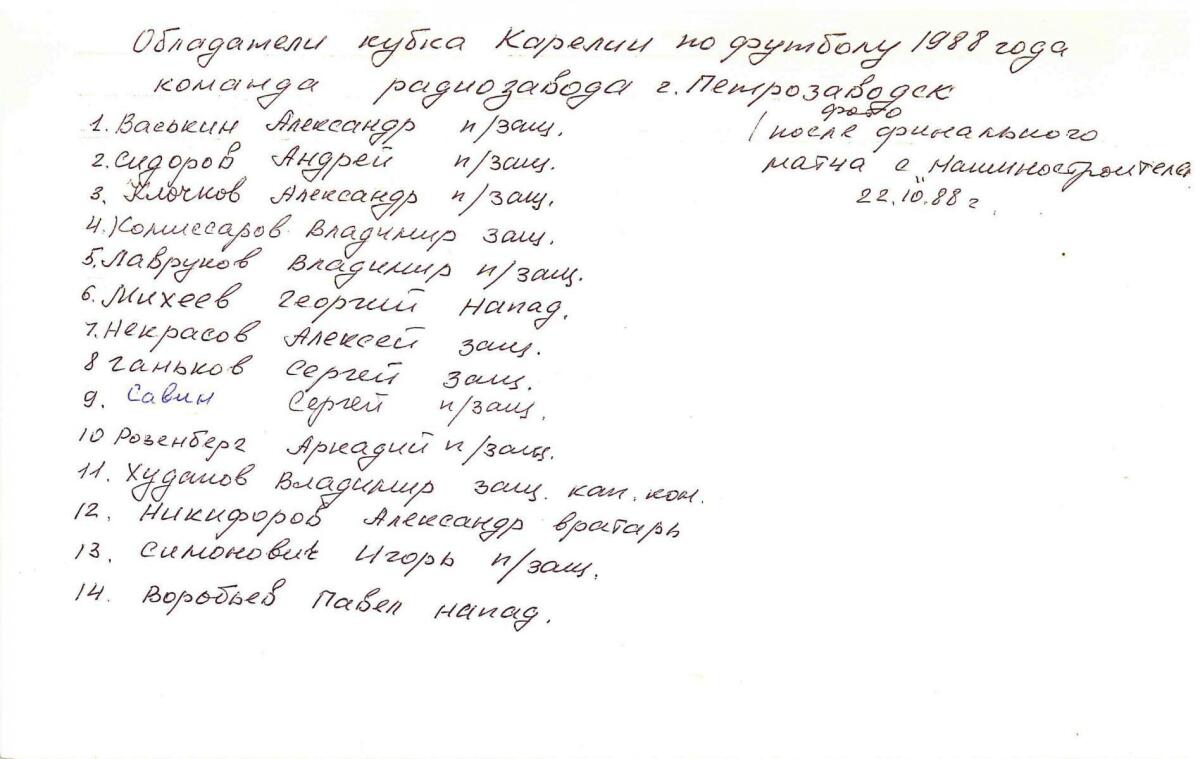 Обладатели кубка Карелии по футболу 1988 года
команда радиозавода г. Петрозаводск
фото
/ после финального
матча с „Машиностроителе
22.10.88 г.
1. Васькин Александр п/защ.
2. Сидоров Андрей п/защ.
3. Клочков Александр п/защ.
4. Комиссаров Владимир защ.
5. Лавруков Владимир п/защ.
6. Михеев Георгий Напад.
7. Некрасов Алексей защ.
8 Ганьков Сергей защ.
9. Савин Сергей п/защ.
10 Розенберг Аркадий п/защ.
11. Худанов Владимир защ. кап. ком.
12. Никифоров Александр вратарь
13. Симонович Игорь п/защ.
14. Воробьев Павел напад.